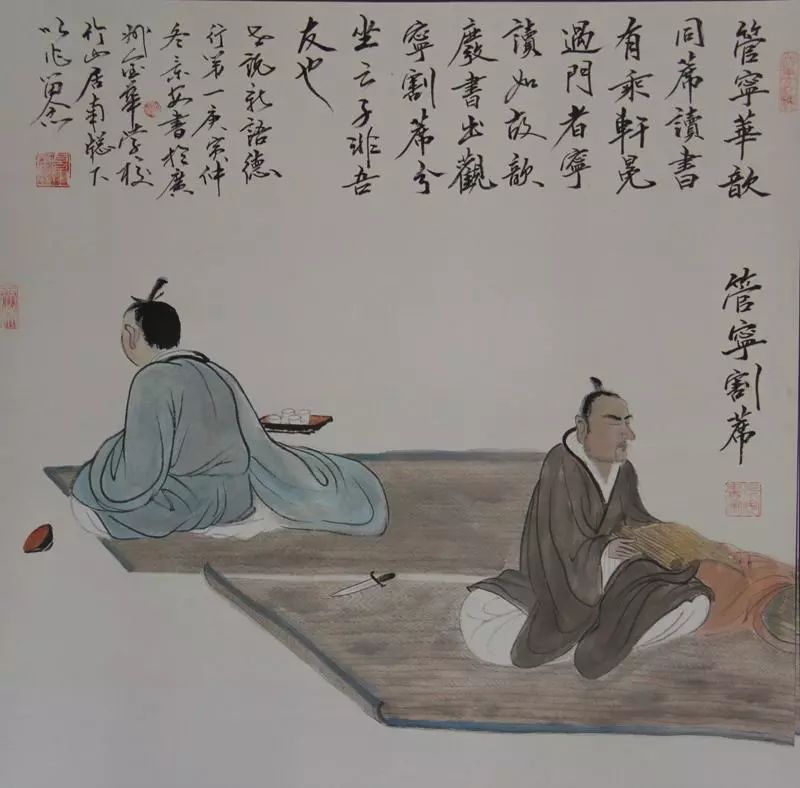 管寧華歆
同蓆讀書
有乘軒冕
過門者寧
讀如故歆
廢書出觀
寧割蓆分
坐云子非吾
友也
世説新語德
行第一庚寅仲
冬書於廣
州金華學校
竹山居南牕下
以作留念
管寧割蓆